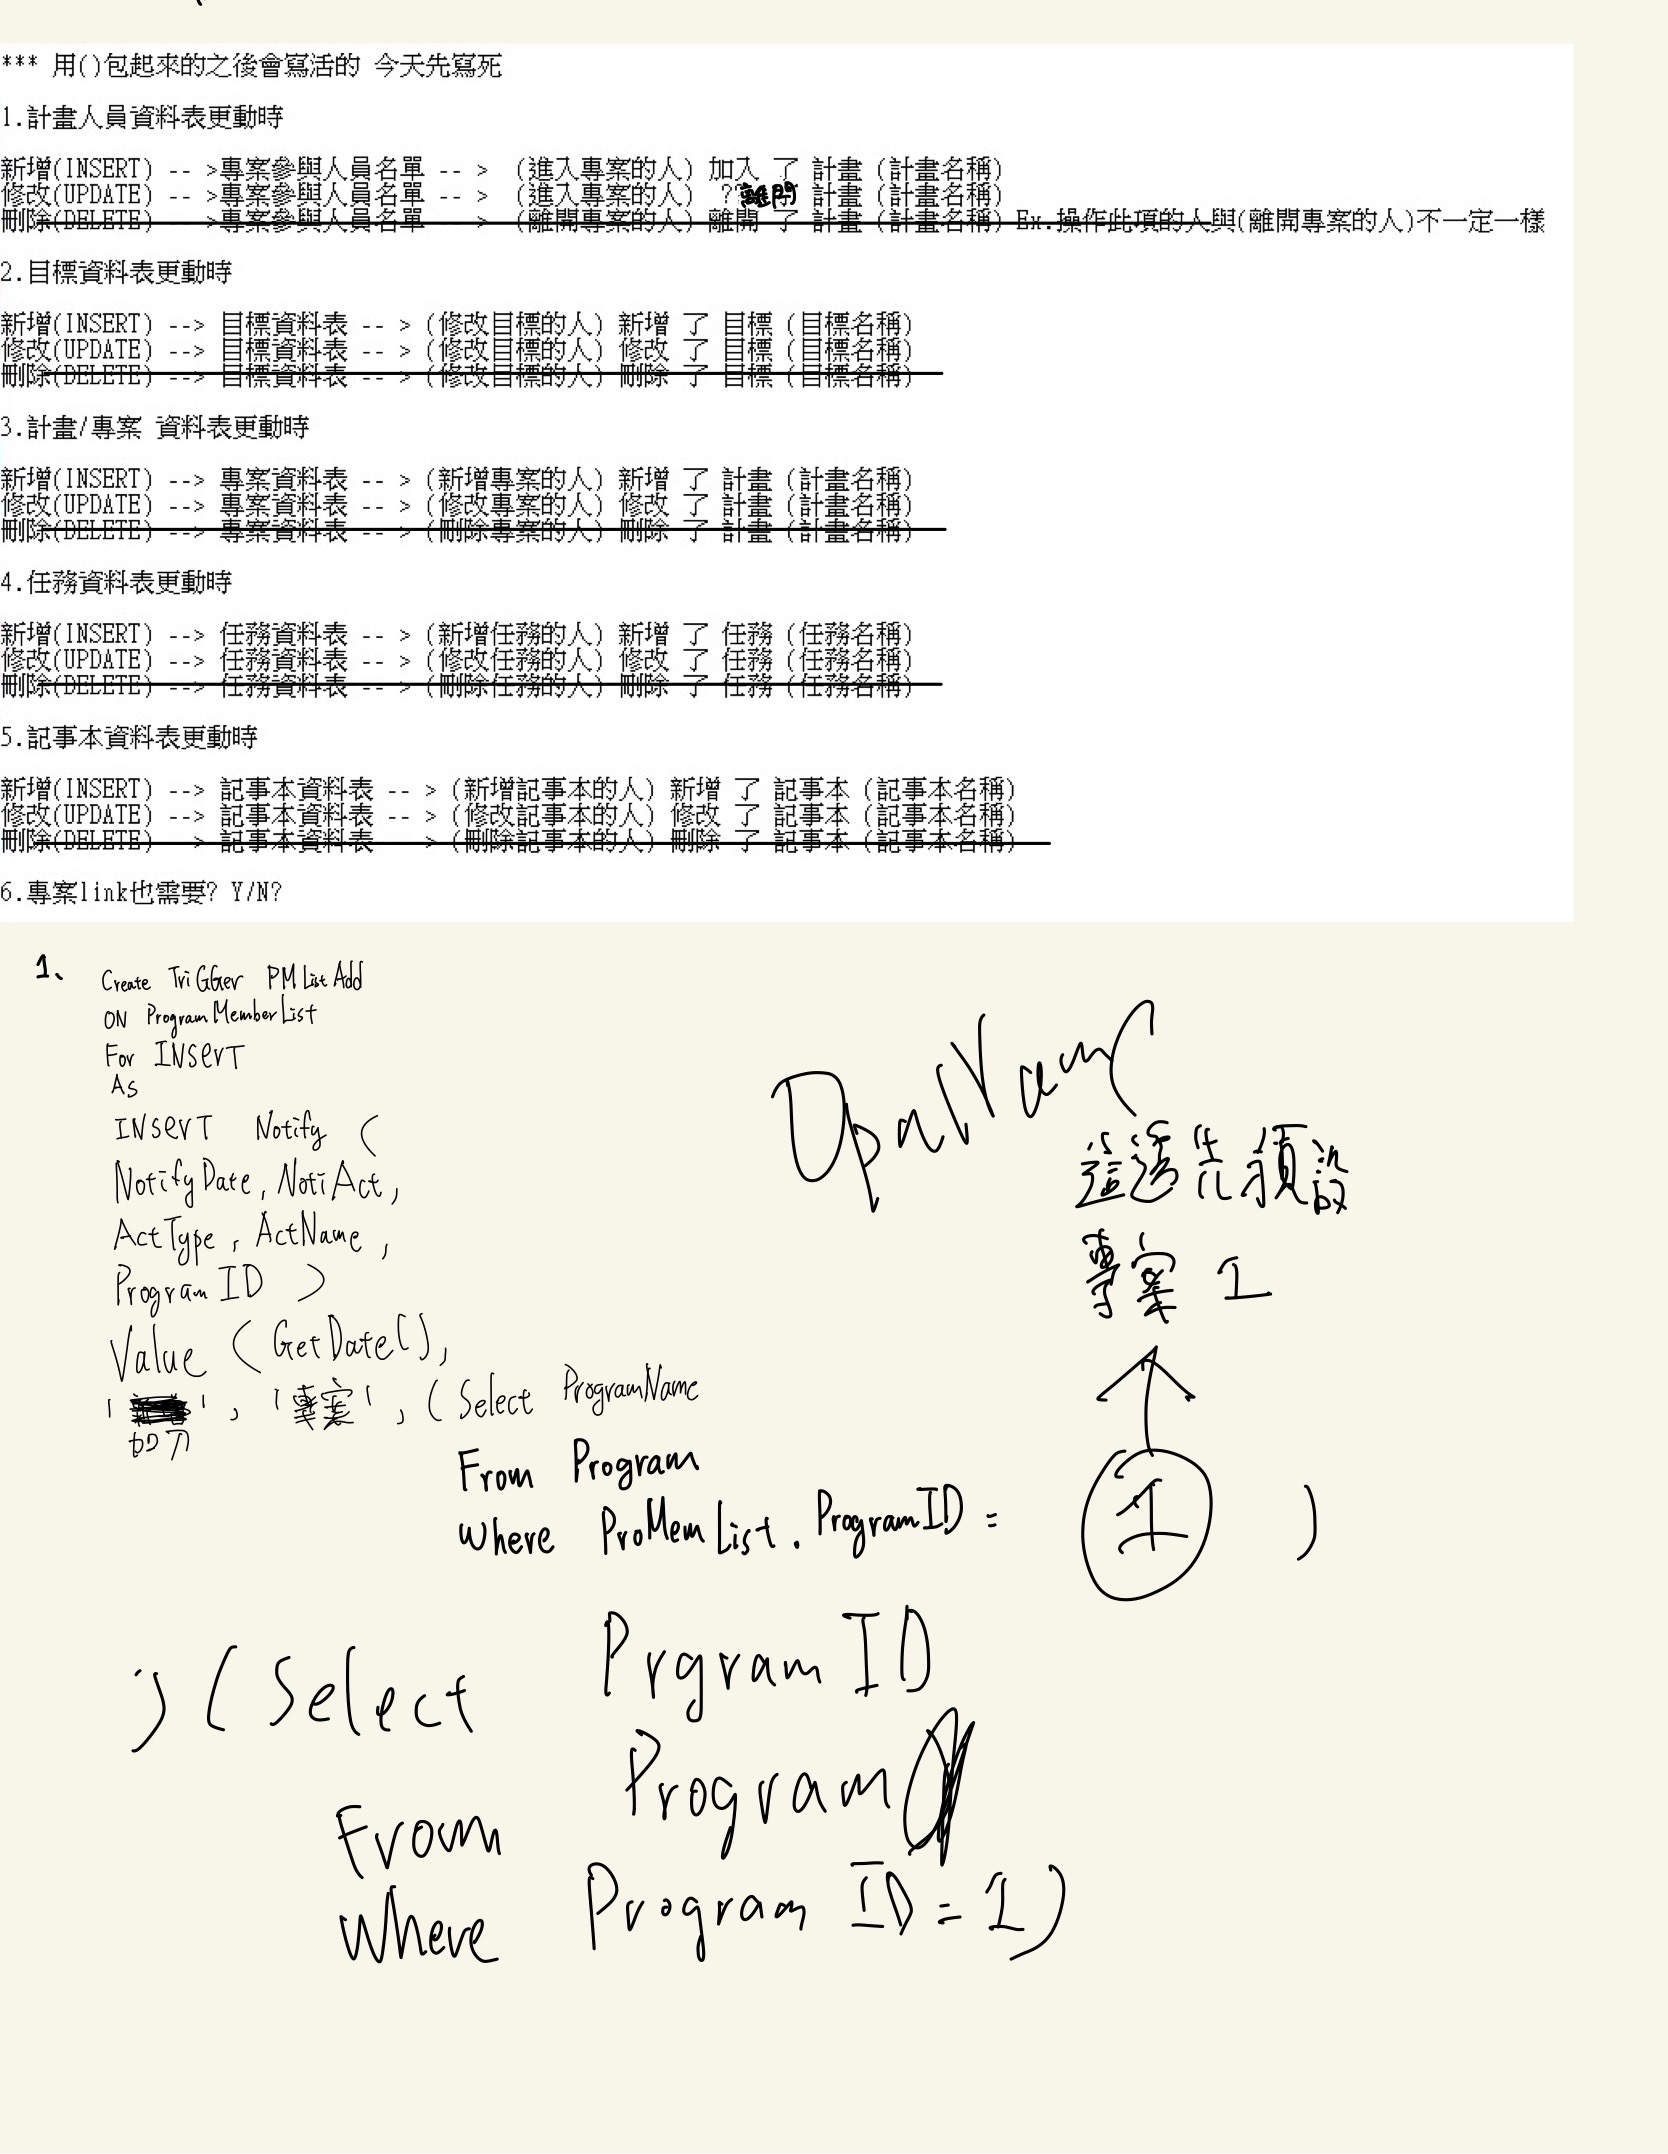 *** 用()包起來的之後會寫活的 今天先寫死
1.計畫人員資料表更動時
新增(INSERT) -- >專案參與人員名單 -- > (進入專案的人) 加入 了 計畫 (計畫名稱)
修改(UPDATE) -- >專案參與人員名單 -- > (進入專案的人) ??離開 計畫 (計畫名稱)
刪除(DELETE) -- >專案參與人員名單 -- > (離開專案的人) 離開 了 計畫 (計畫名稱) Ex.操作此項的人與(離開專案的人)不一定一樣
2.目標資料表更動時
新增(INSERT) --> 目標資料表 -- > (修改目標的人) 新增 了 目標 (目標名稱)
修改(UPDATE) --> 目標資料表 -- > (修改目標的人) 修改 了 目標 (目標名稱)
刪除(DELETE) --> 目標資料表 -- > (修改目標的人) 刪除 了 目標 (目標名稱)
3.計畫/專案 資料表更動時
新增(INSERT) --> 專案資料表 -- > (新增專案的人) 新增 了 計畫 (計畫名稱)
修改(UPDATE) --> 專案資料表 -- > (修改專案的人) 修改 了 計畫 (計畫名稱)
刪除(DELETE) --> 專案資料表 -- > (刪除專案的人) 刪除 了 計畫 (計畫名稱)
4.任務資料表更動時
新增(INSERT) --> 任務資料表 -- > (新增任務的人) 新增 了 任務 (任務名稱)
修改(UPDATE) --> 任務資料表 -- > (修改任務的人) 修改 了 任務 (任務名稱)
刪除(DELETE) --> 任務資料表 -- > (刪除任務的人) 刪除 了 任務 (任務名稱)
5.記事本資料表更動時
新增(INSERT) --> 記事本資料表 -- > (新增記事本的人) 新增 了 記事本 (記事本名稱)
修改(UPDATE) --> 記事本資料表 -- > (修改記事本的人) 修改 了 記事本 (記事本名稱)
刪除(DELETE) --> 記事本資料表 -- > (刪除記事本的人) 刪除 了 記事本 (記事本名稱)
6.專案link也需要? Y/N?
1、 Create TriGGer PMListAdd
ON ProgramMemberList
For INSerT
As
INSerT Notify (
NotifyDate, NotiAct,
ActType, ActName,
ProgramID )
Value ( GetDate(),
' ', '專案', ( Select ProgramName
加入
From Program
Where ProMemList.ProgramID = 1 )
這邊先預設
專案 1
) ( Select PrgramID
From Program
Where ProgramID = 1 )